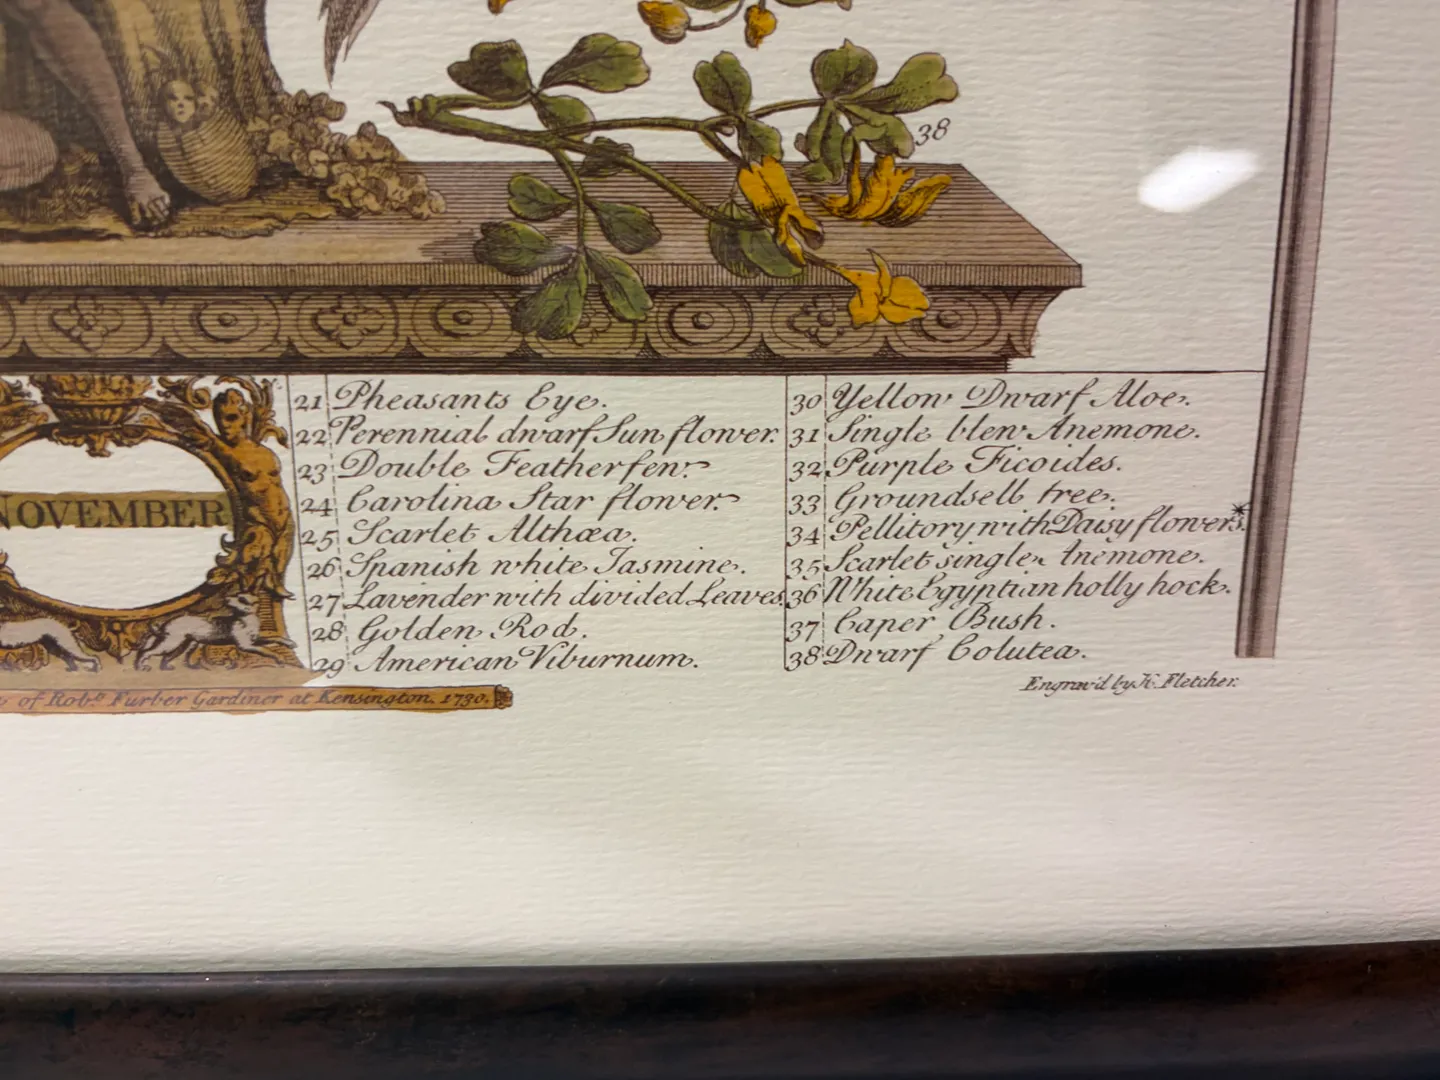 38
NOVEMBER
21 Pheasants Eye.
22 Perennial dwarf Sun flower.
23 Double Featherfew.
24 Carolina Star flower.
25 Scarlet Althæa.
26 Spanish white Jasmine.
27 Lavender with divided Leaves.
28 Golden Rod.
29 American Viburnum.
30 Yellow Dwarf Aloe.
31 Single blew Anemone.
32 Purple Ficoides.
33 Groundsell tree.
34 Pellitory with Daisy flowers.*
35 Scarlet single Anemone.
36 White Egyptian holly hock.
37 Caper Bush.
38 Dwarf Colutea.
of Robt. Furber Gardiner at Kensington. 1730.
Engrav'd by H. Fletcher.